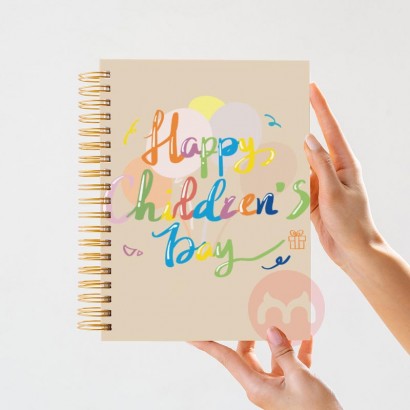 Happy
Children's
Day